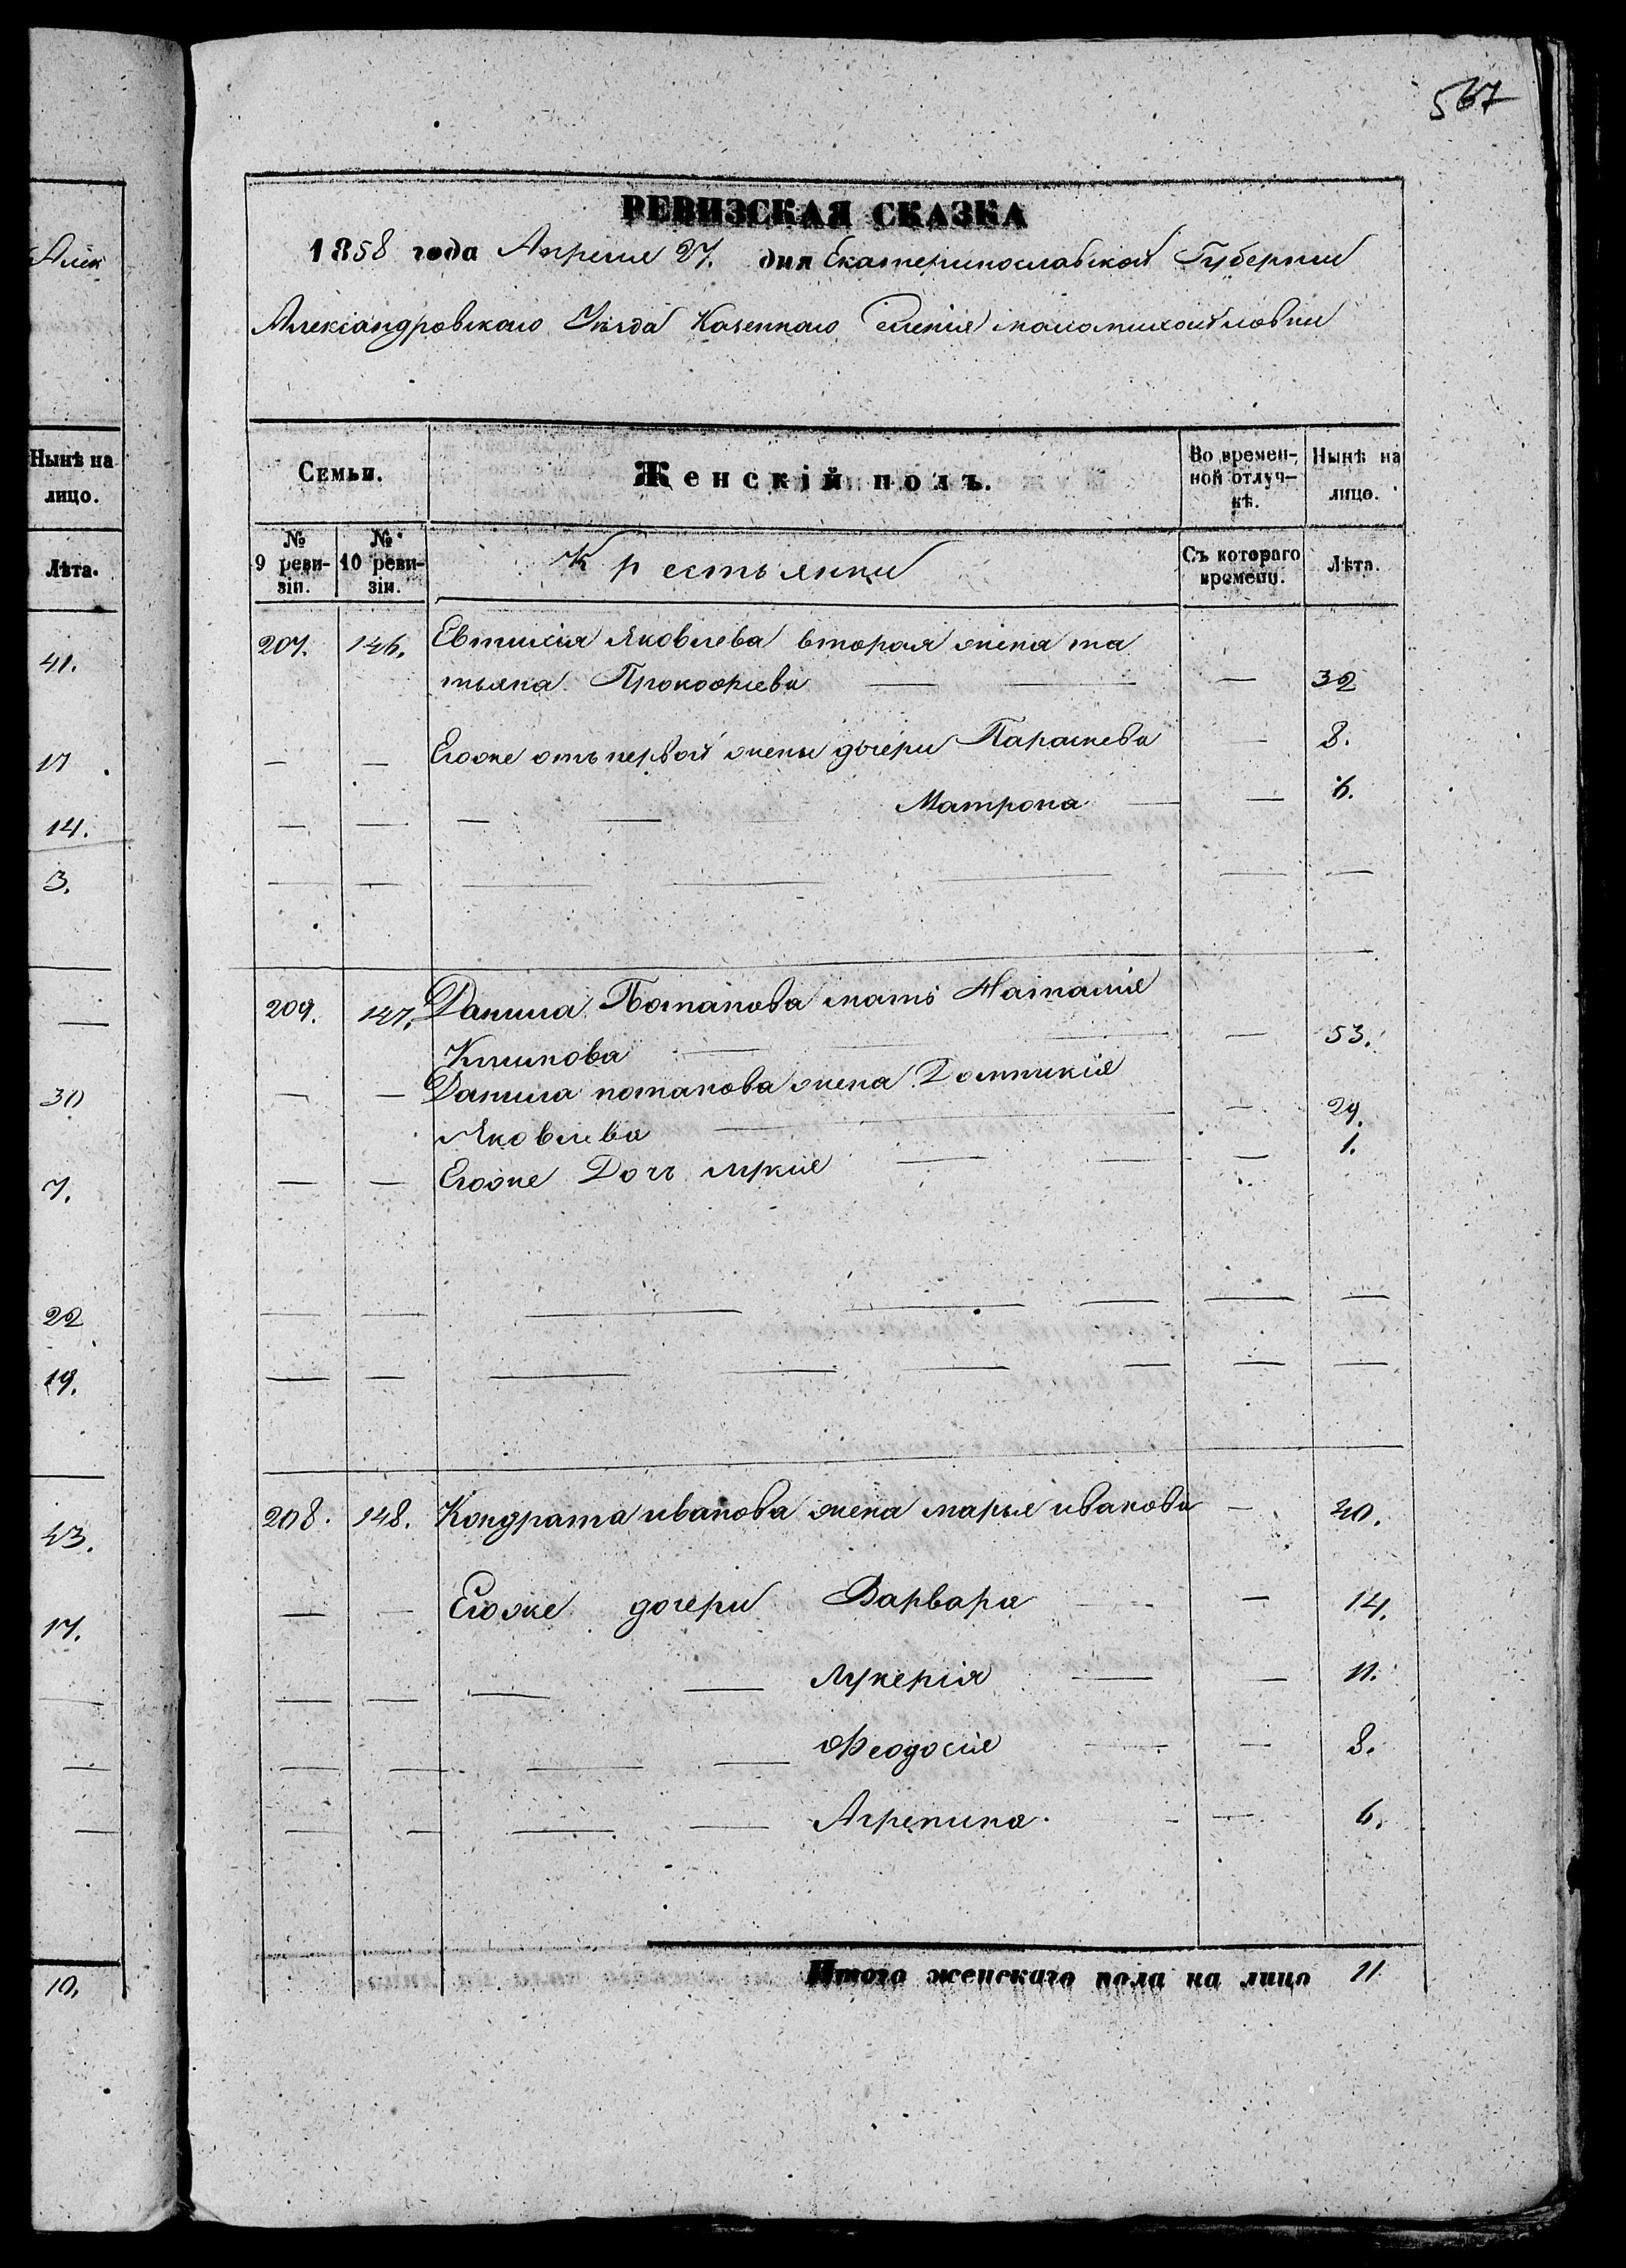 567
РЕВИЗСКАЯ СКАЗКА
1858 года Апреля 27. дня Екатеринославской Губернии
Александровского Уѣзда Казенного Селенія маломихайловки
Семьи.
Женскій полъ.
Во времен-
ной отлуч-
кѣ.
Нынѣ на
лицо.
№
9 реви-
зіи.
№
10 реви-
зіи.
Крестьянки
Съ котораго
времени.
Лѣта.
207. 146. Евтихія Яковлева вторая жена та
тьяна Прокофьева — — — 32
— — Егоже отъ первой жены дочери Параскева — 8.
— — — — Матрона — — 6.
— — — — — — —
209. 147. Данила Потапова мать Наталия
Климова — — — — 53.
— — Данила потапова жена Домникія
Яковлева — — — 29.
— — Егоже Дочь лукия — — — 1.
— — — — — — —
— — — — — — — —
208. 148. Кондрата иванова жена марья иванова — 40.
— — Егоже дочери Варвара — — 14.
— — — — лукерія — — 11.
— — — — Феодосия — — 8.
— — — — Агрепина. — — 6.
Итого женскаго пола на лицо 11
Алек
Нынѣ на
лицо.
Лѣта.
41.
17.
14.
3.
—
30
7.
22
19.
43.
17.
—
—
—
10.